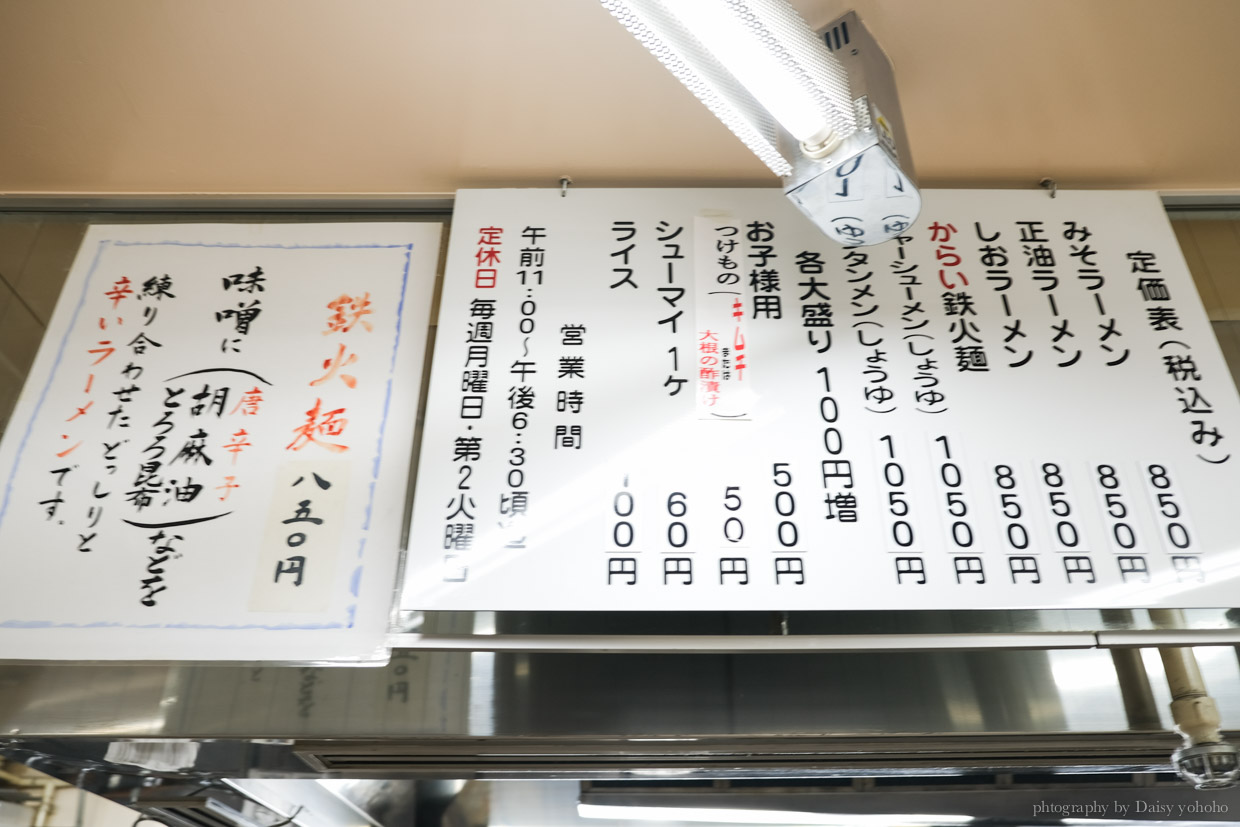 定価表(税込み)
みそラーメン 850円
正油ラーメン 850円
しおラーメン 850円
からい鉄火麺 850円
チャーシューメン(しょうゆ) 1050円
タンメン(しょうゆ) 1050円
各大盛り 100円増
お子様用 500円
つけもの(キムチまたは大根の酢漬け) 50円
シューマイ 1ケ 60円
ライス 100円
営業時間
午前11:00~午後6:30頃
定休日 毎週月曜日・第2火曜日
鉄火麺 八五〇円
味噌に(唐辛子
胡麻油
とろろ昆布)などを
練り合わせたどっしりと
辛いラーメンです。
photography by Daisy yohoho